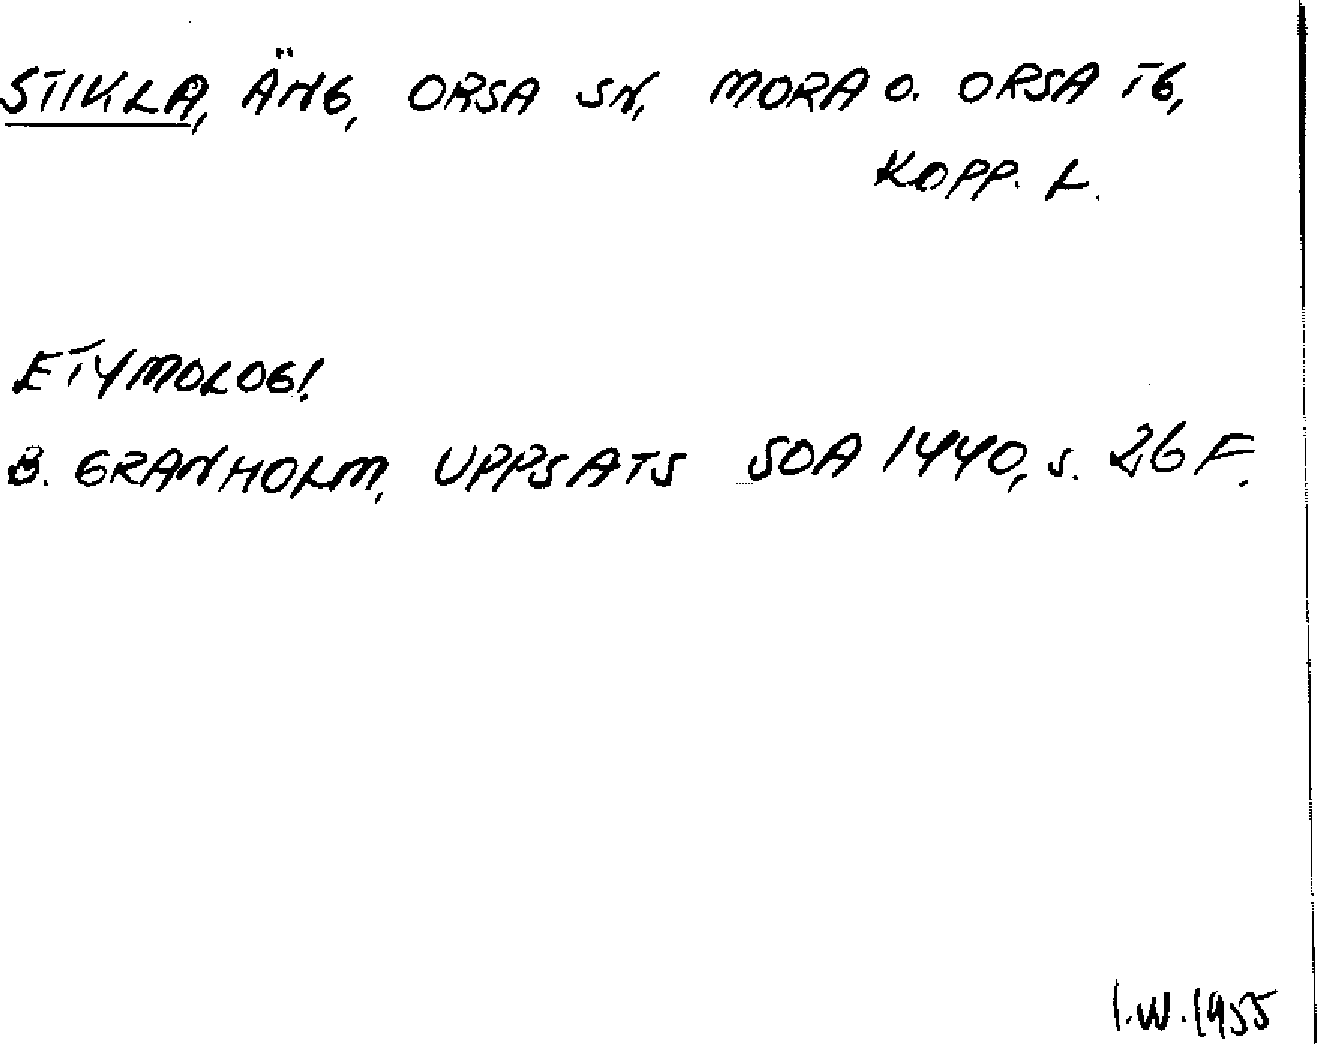 STIKLA, ÄNG, ORSA SN, MORA O. ORSA TG,
KOPP. L.
ETYMOLOGI
B. GRANHOLM, UPPSATS SOA 1440, S. 26 F.
I.W. 1955